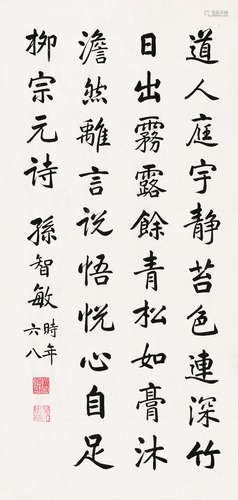 道人庭宇静苔色連深竹
日出霧露餘青松如膏沐
澹然離言說悟悅心自足
柳宗元诗 孫智敏時年六八